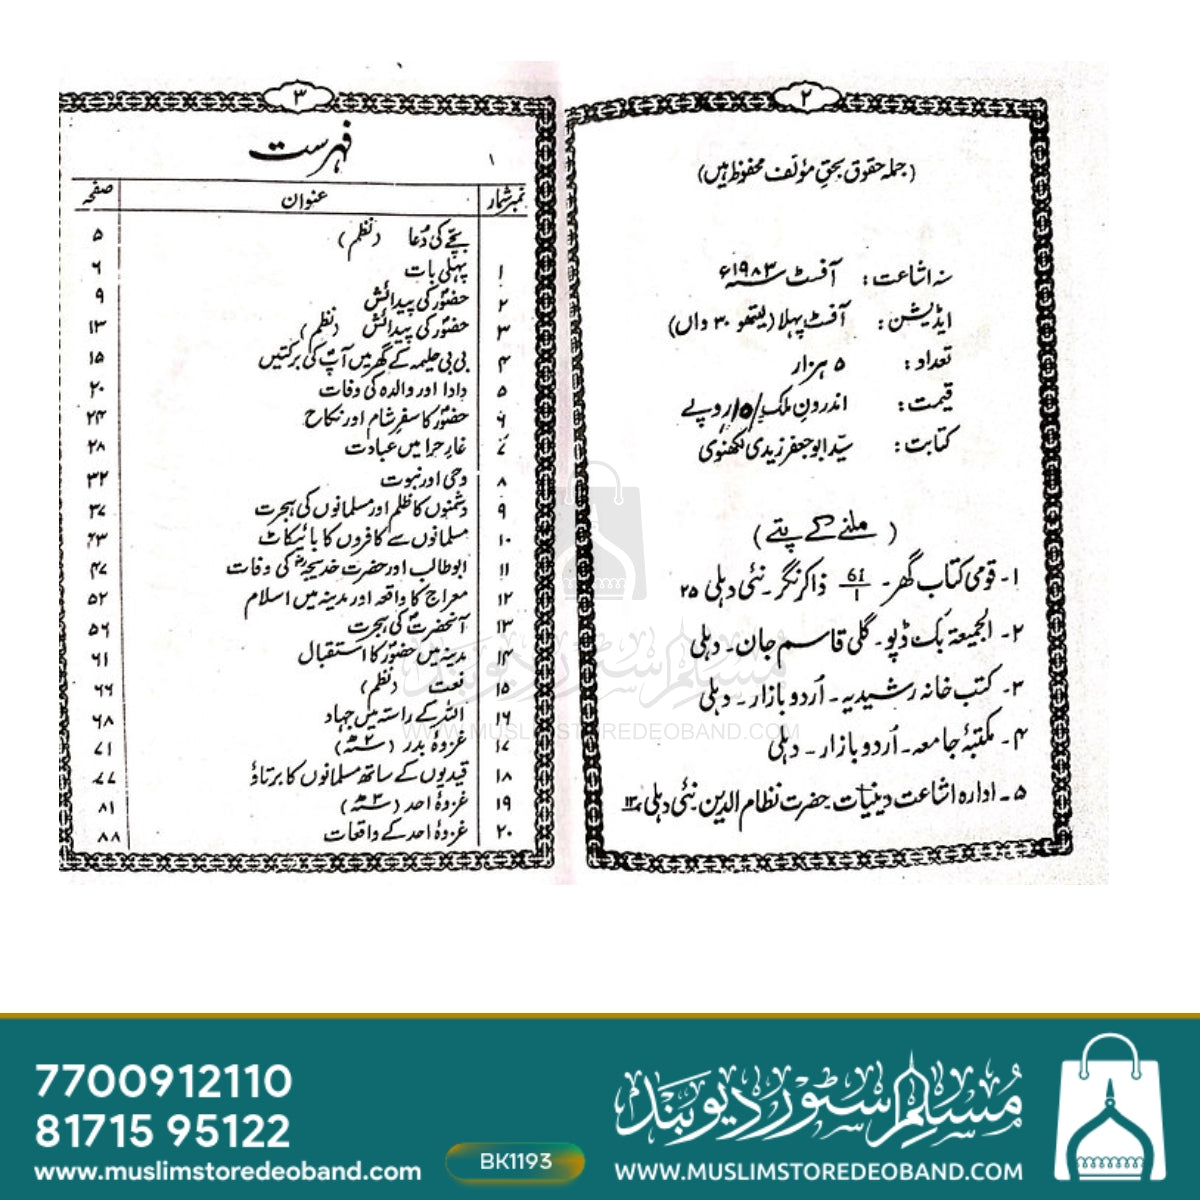 ۲
(جملہ حقوق بحق مؤلف محفوظ ہیں)
سنہ اشاعت: آفسٹ سنہ ۱۹۸۳ء
ایڈیشن: آفسٹ پہلا (لیتھو ۳۰ واں)
تعداد: ۵ ہزار
قیمت: اندرونِ ملک /۱۵ روپے
کتابت: سیّد ابو جعفر زیدی لکھنوی
(ملنے کے پتے)
۱- قومی کتاب گھر - ذاکر نگر - نئی دہلی ۲۵
۲- الجمیعۃ بک ڈپو - گلی قاسم جان - دہلی
۳- کتب خانہ رشیدیہ - اُردو بازار - دہلی
۴- مکتبۂ جامعہ - اُردو بازار - دہلی
۵- ادارہ اشاعت دینیات حضرت نظام الدین نئی دہلی ۱۳
۳
فہرست
۱
نمبر شمار عنوان صفحہ
بچّے کی دُعا (نظم) ۵
۱ پہلی بات ۶
۲ حضورؐ کی پیدائش ۹
۳ حضورؐ کی پیدائش (نظم) ۱۳
۴ بی بی حلیمہ کے گھر میں آپؐ کی برکتیں ۱۵
۵ دادا اور والدہ کی وفات ۲۰
۶ حضورؐ کا سفرِ شام اور نکاح ۲۴
۷ غارِ حرا میں عبادت ۲۸
۸ وحی اور نبوت ۳۲
۹ دشمنوں کا ظلم اور مسلمانوں کی ہجرت ۳۷
۱۰ مسلمانوں سے کافروں کا بائیکاٹ ۴۳
۱۱ ابوطالب اور حضرت خدیجہؓ کی وفات ۴۷
۱۲ معراج کا واقعہ اور مدینہ میں اسلام ۵۲
۱۳ آنحضرتؐ کی ہجرت ۵۶
۱۴ مدینہ میں حضورؐ کا استقبال ۶۱
۱۵ نعت (نظم) ۶۶
۱۶ اللہ کے راستہ میں جہاد ۶۸
۱۷ غزوۂ بدر (۲ھ) ۷۱
۱۸ قیدیوں کے ساتھ مسلمانوں کا برتاؤ ۷۷
۱۹ غزوۂ احد (۳ھ) ۸۱
۲۰ غزوۂ احد کے واقعات ۸۸
مسلم سٹور دیوبند
WWW.MUSLIMSTOREDEOBAND.COM
7700912110
81715 95122
www.muslimstoredeoband.com
BK1193
مسلم سٹور دیوبند
WWW.MUSLIMSTOREDEOBAND.COM